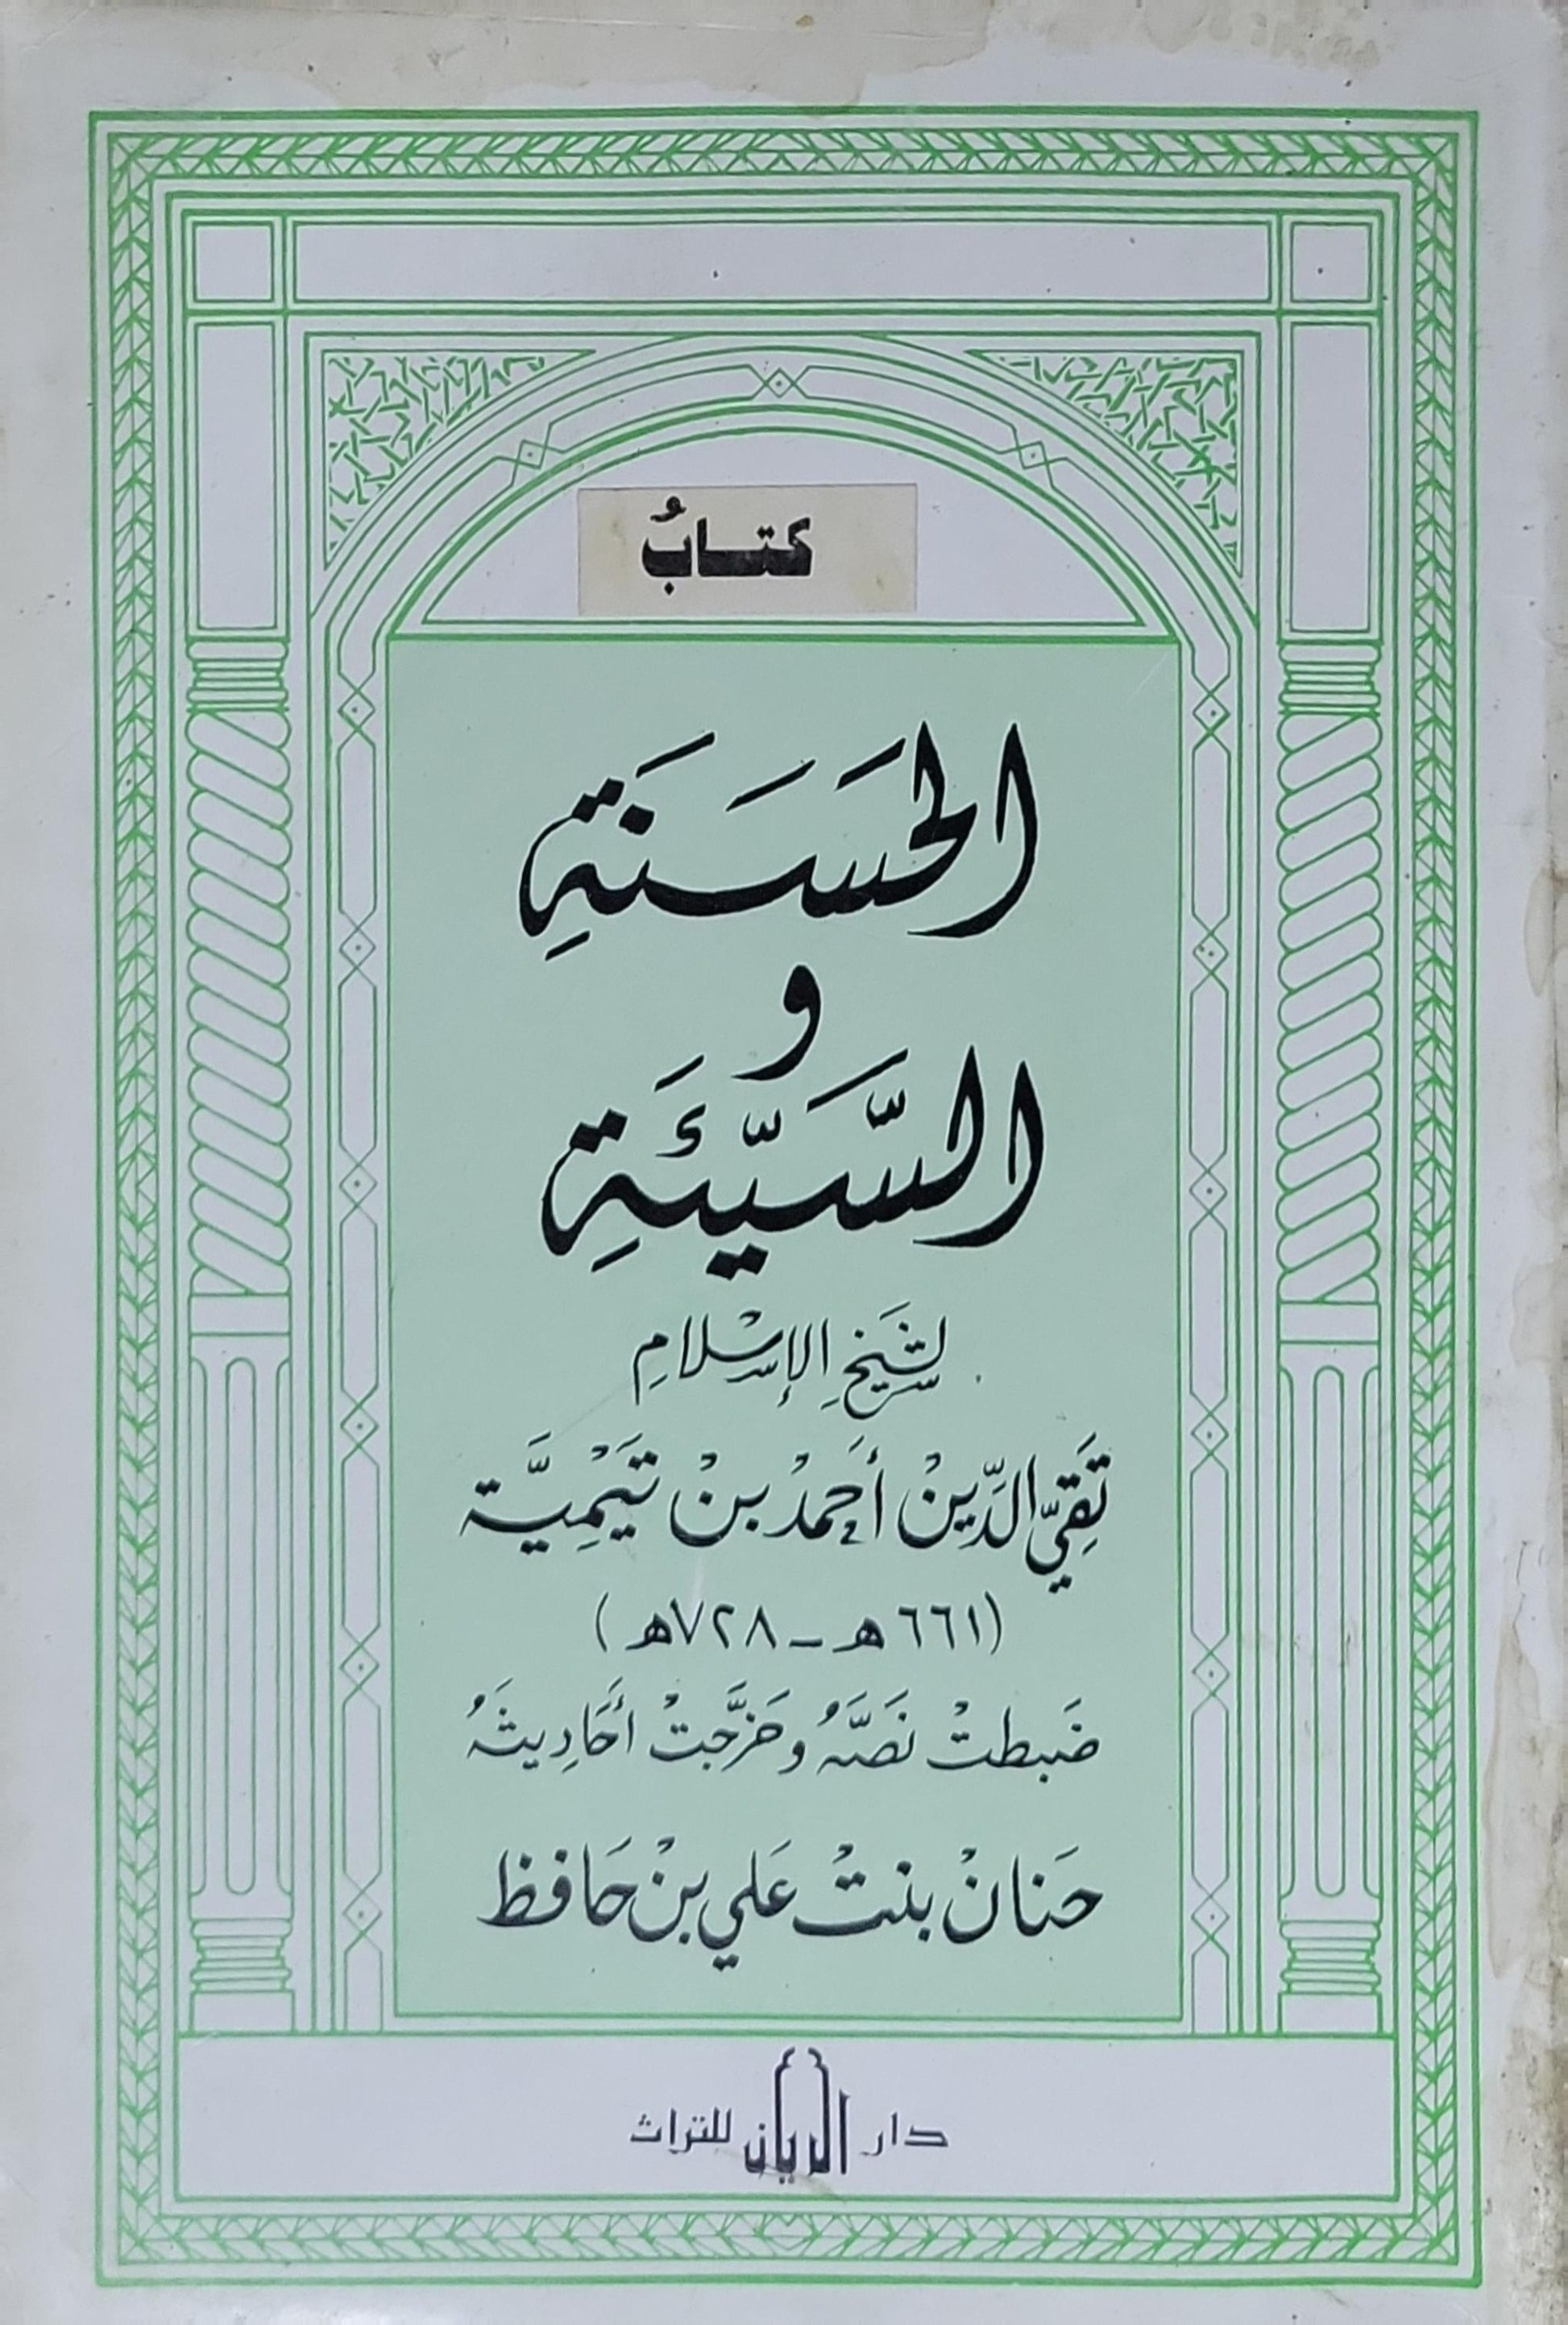 كتابُ
الحَسَنَةِ
و
السَّيِّئَةِ
لشَيْخِ الإِسْلامِ
تَقِيِّ الدِّينْ أَحمَدْ بنْ تَيْمِيَّة
(٦٦١هـ - ٧٢٨هـ)
ضَبطتْ نَصَّهُ وخرَّجتْ أحَادِيثَهُ
حَنانْ بنتْ عَلي بنْ حَافظ
دار الريان للتراث